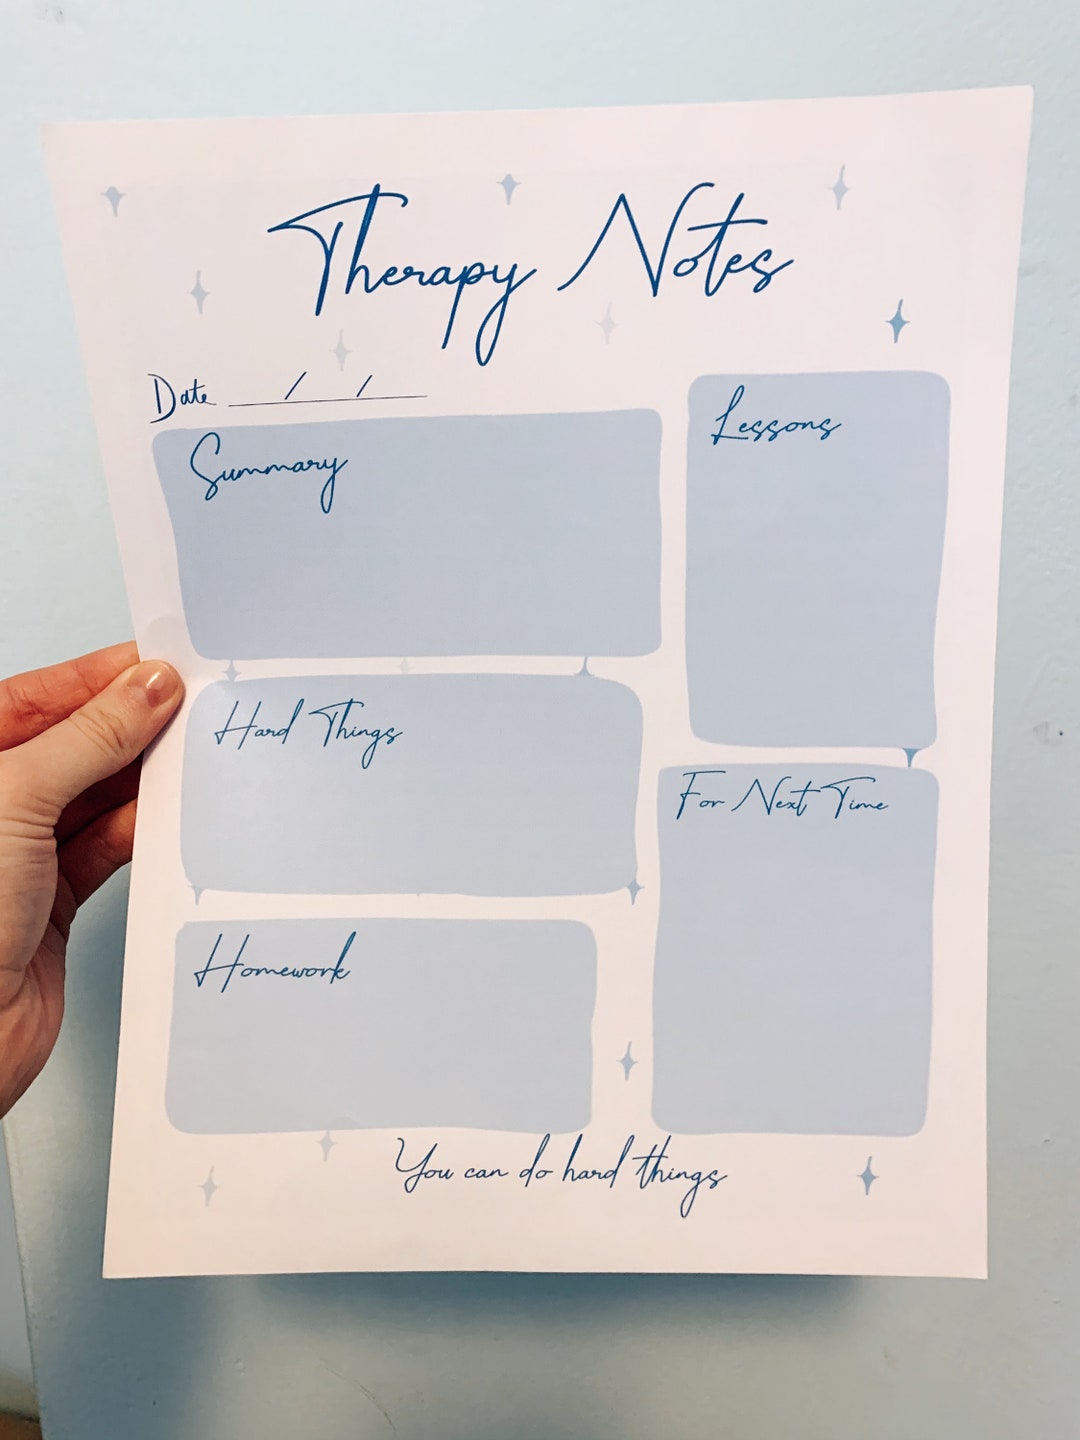 Therapy Notes
Date __/__/__
Summary
Lessons
Hard Things
For Next Time
Homework
You can do hard things